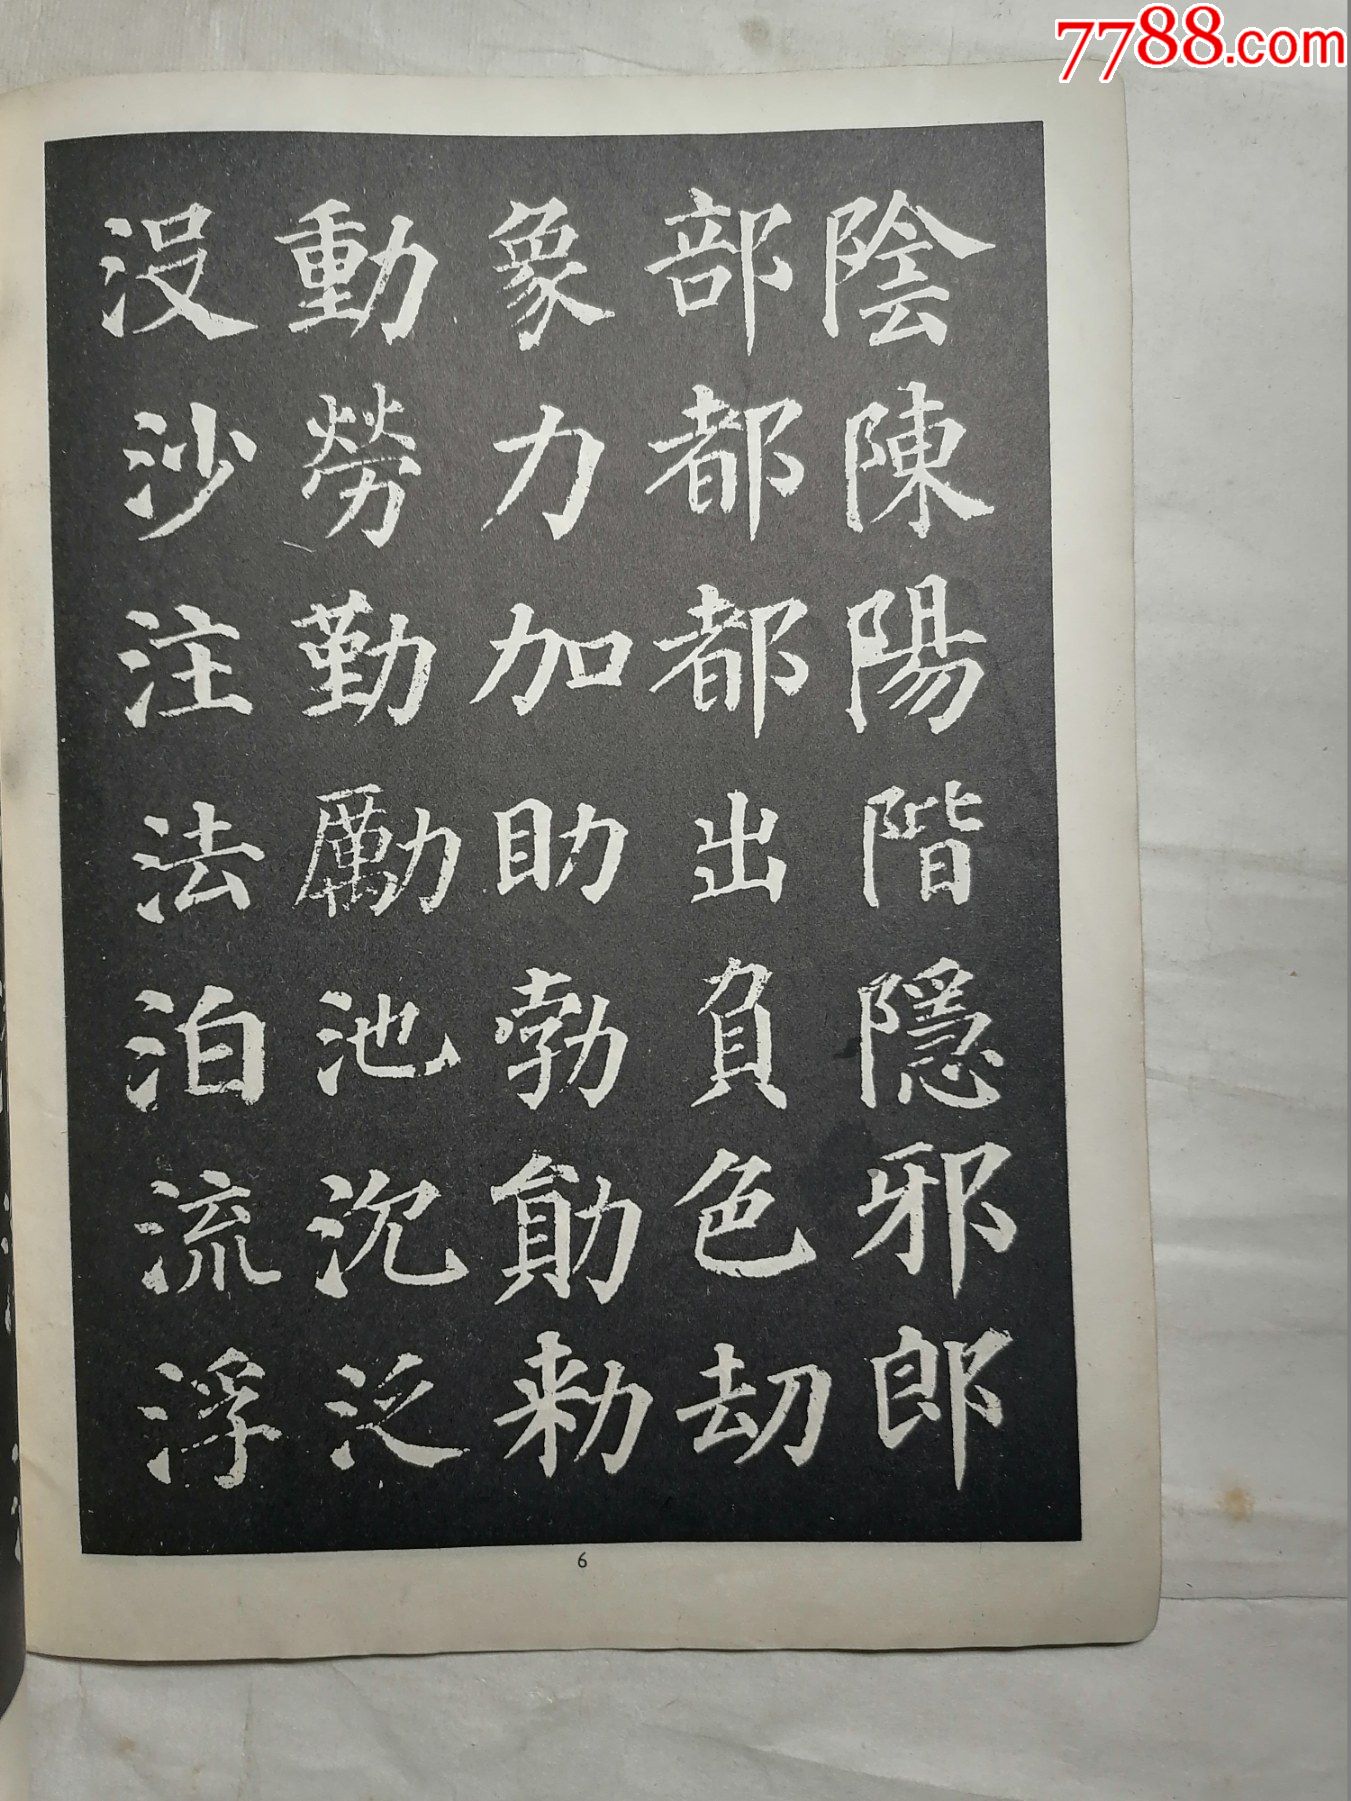 7788.com
陰陳陽階隱邪郎
部都都出負色劫
象力加助勃勛敕
動勞勤勵池沉泛
没沙注法泊流浮
6